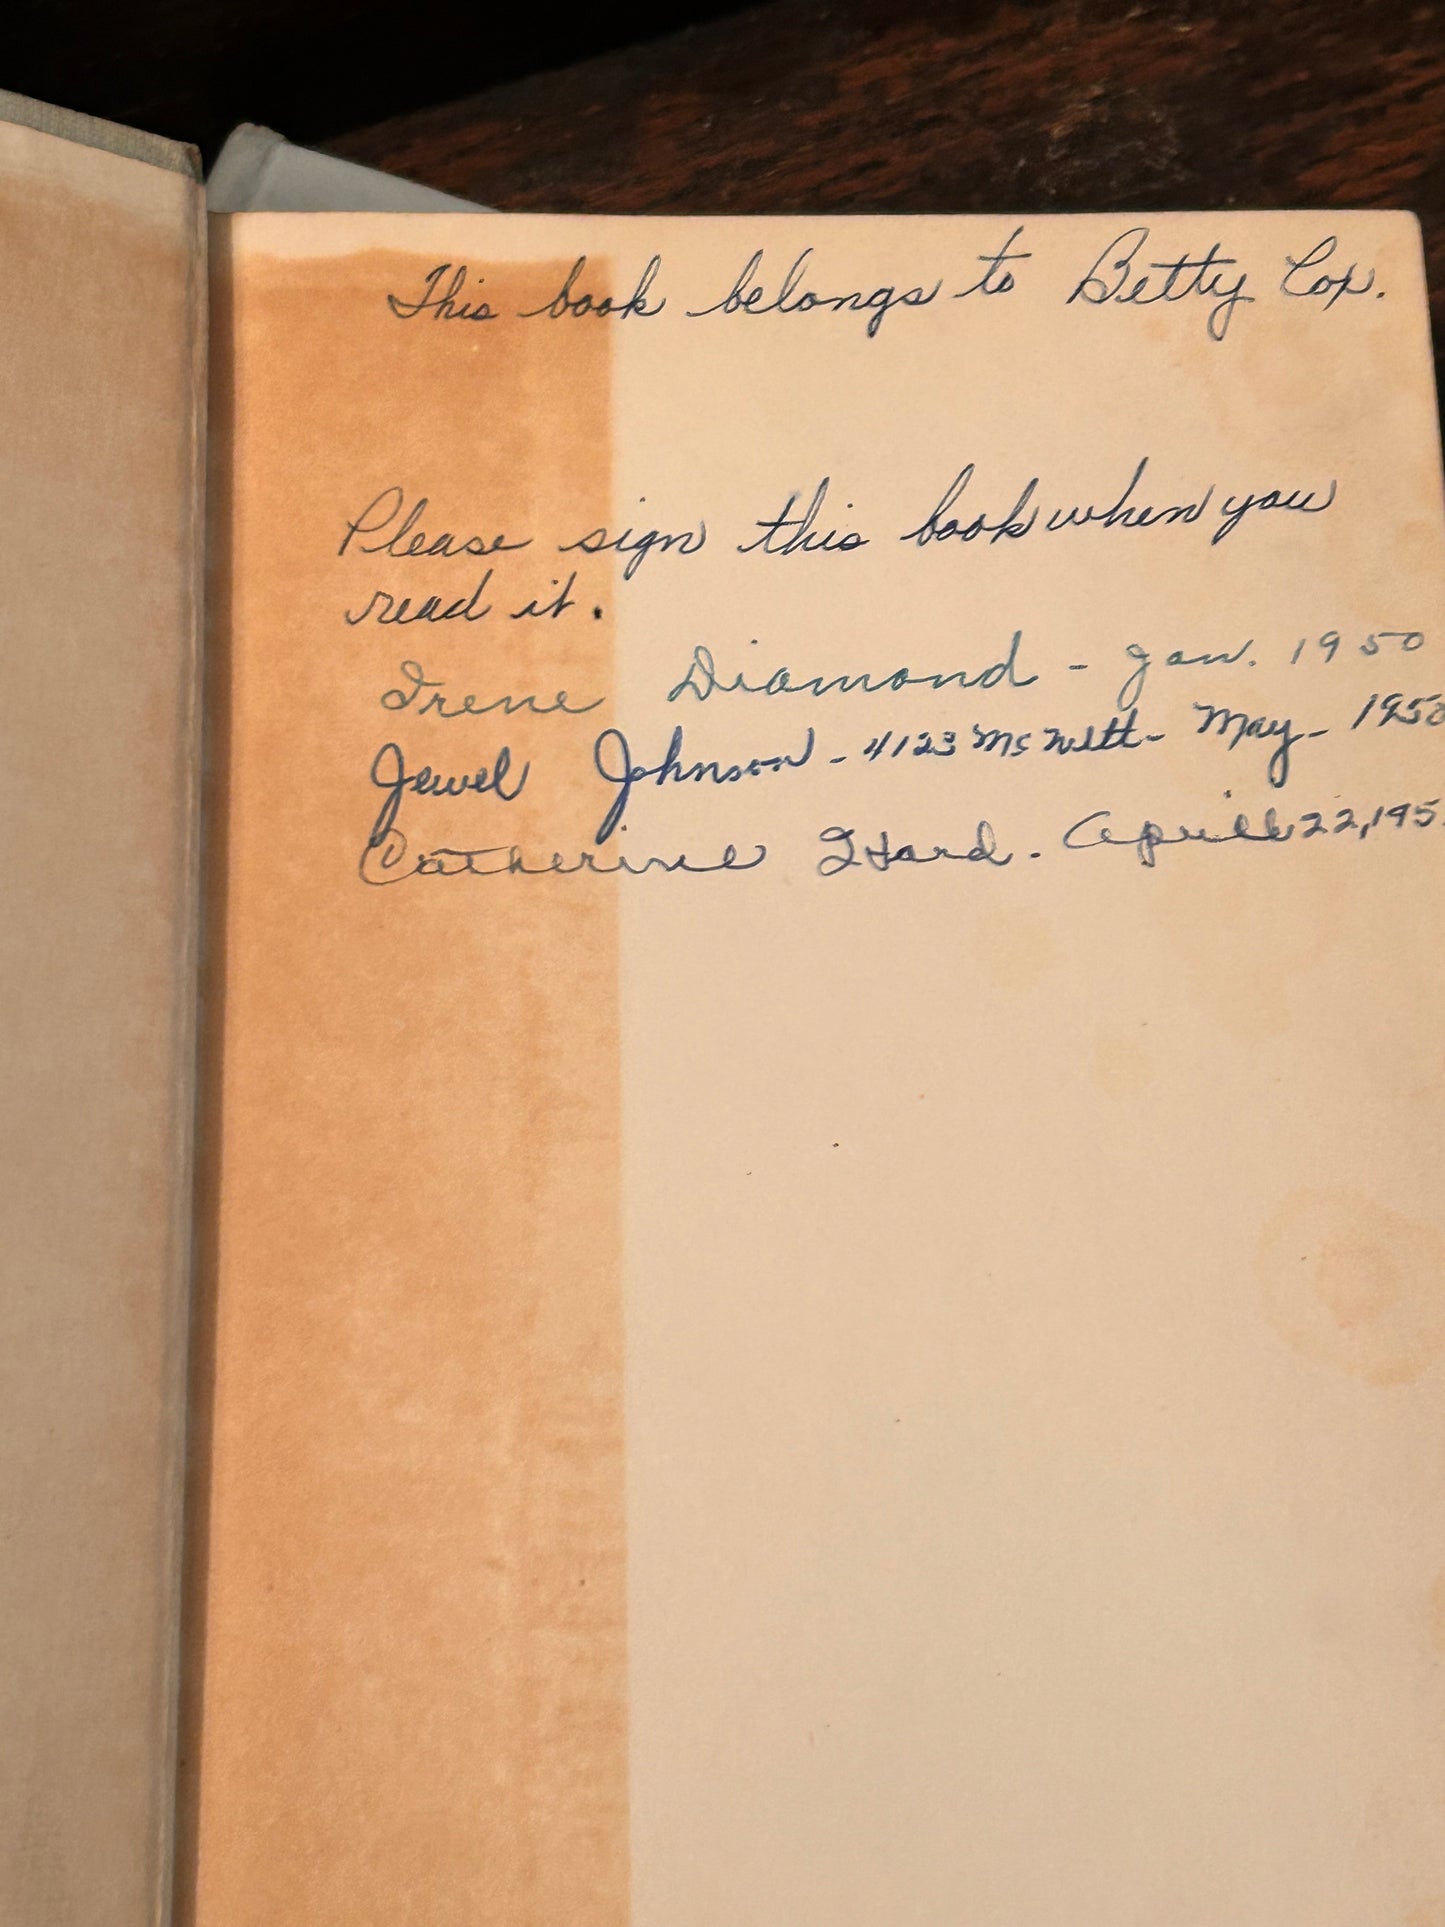 This book belongs to Betty Cox.
Please sign this book when you
read it.
Irene Diamond - Jan. 1950
Jewel Johnson - 4123 McNitt - May - 1950
Catherine Hard. April 22, 195